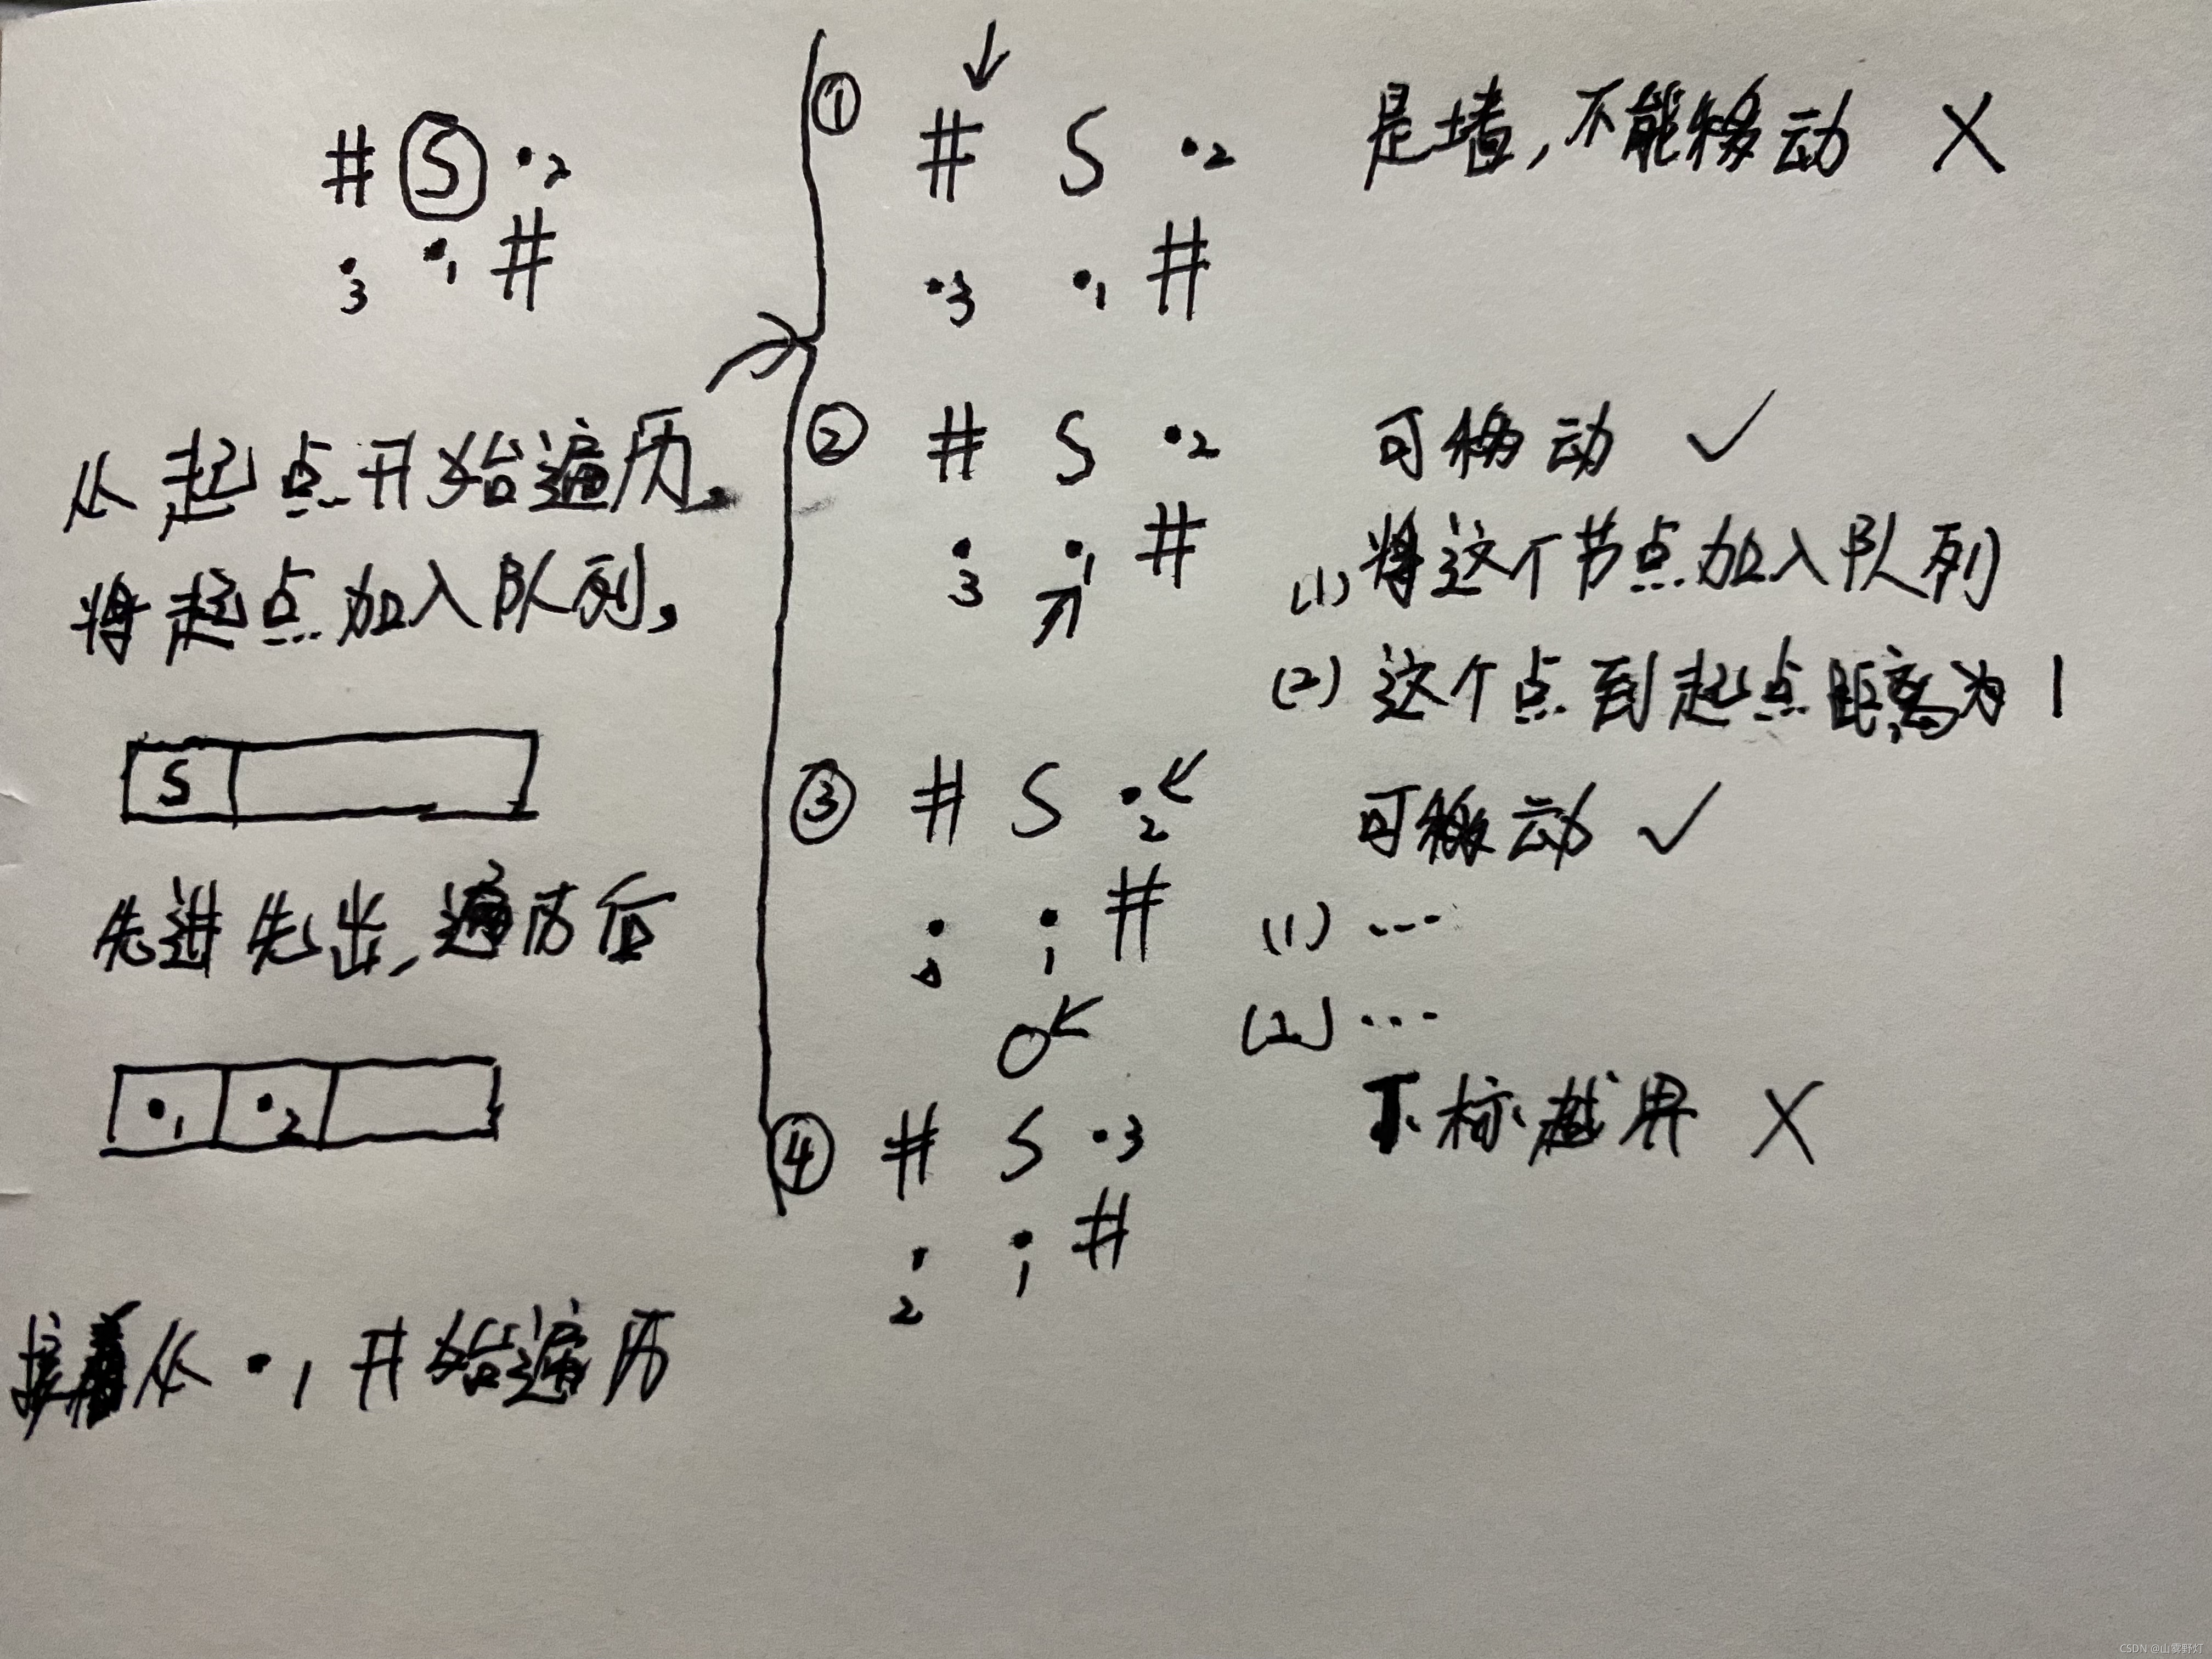 # S ·2
·3 ·1 #
从起点开始遍历,
将起点加入队列,
S
先进先出,遍历后
·1 ·2
接着从 ·1 开始遍历
① # S ·2 是墙,不能移动 X
·3 ·1 #
② # S ·2 可移动 ✓
·3 ·1 #
(1) 将这个节点加入队列
(2) 这个点到起点距离为 1
③ # S ·2 可移动 ✓
· ·1 #
(1) ...
(2) ...
④ # S ·3 下标越界 X
·2 ·1 #
CSDN @山雾野灯